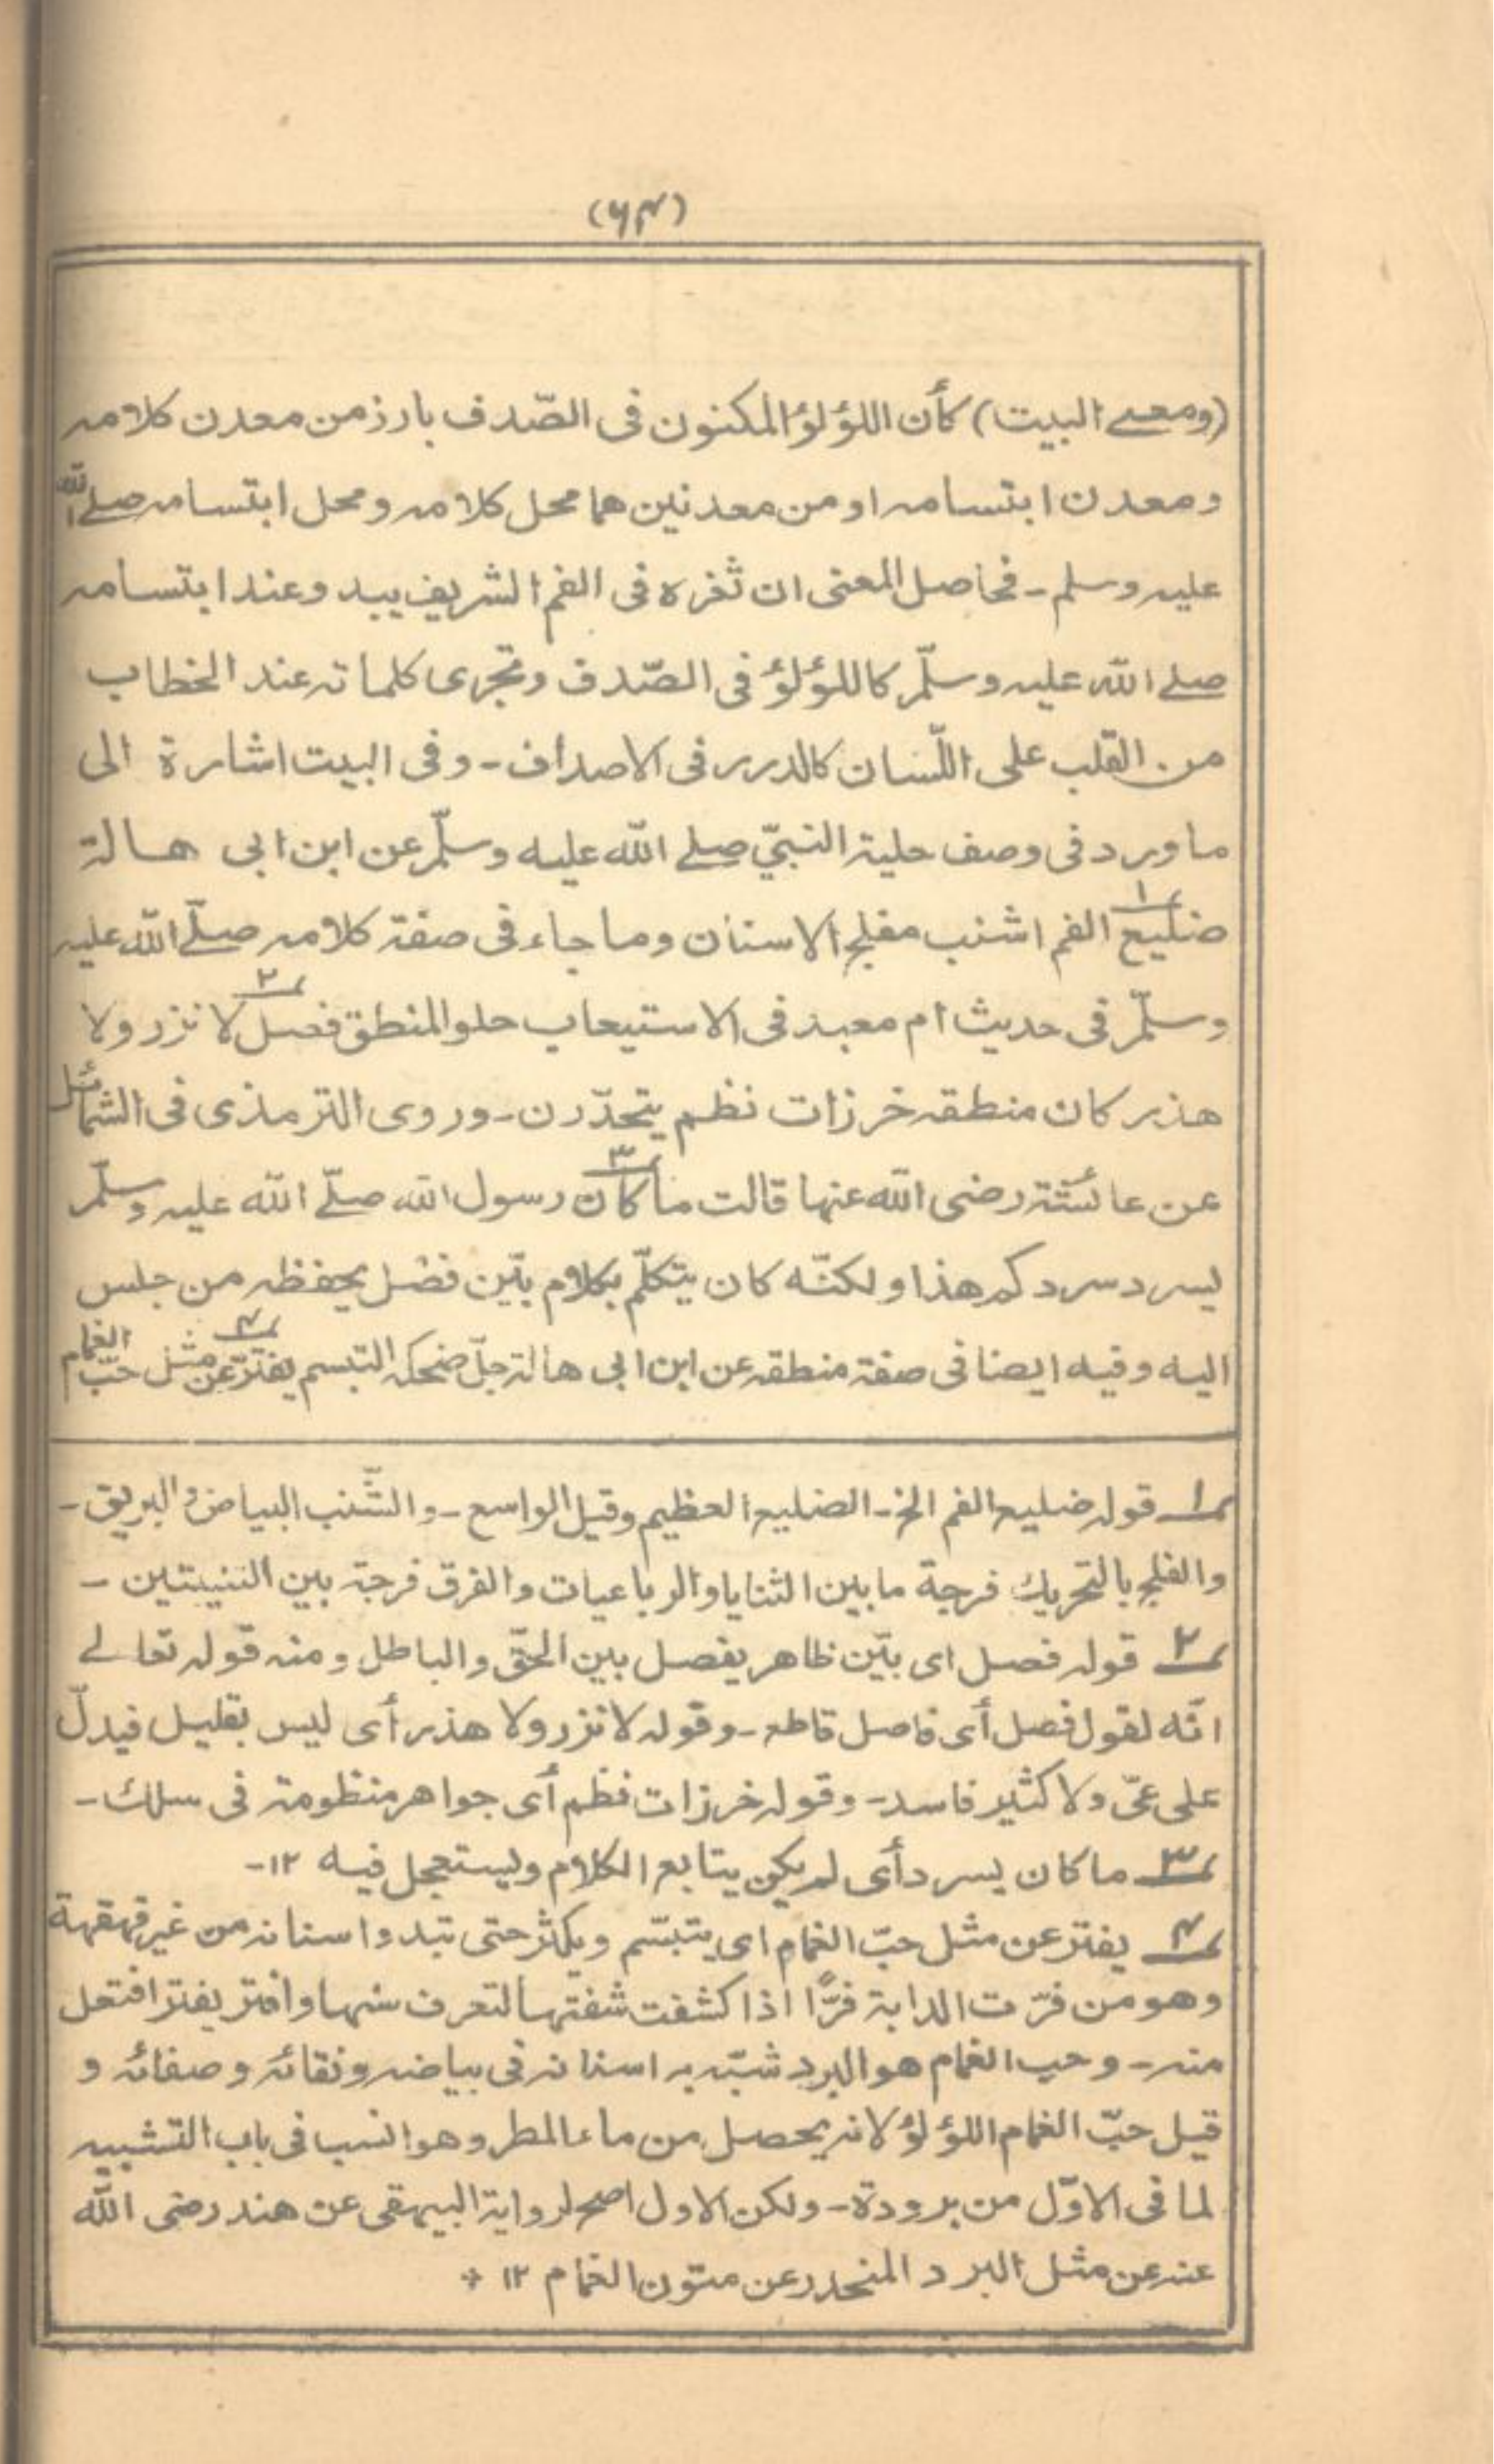 (٦٤)
(ومعنى البيت) كأن اللؤلؤ المكنون فى الصّدف بارز من معدن كلامه
ومعدن ابتسامه او من معدنين هما محل كلامه ومحل ابتسامه صلے الله
عليه وسلم - فحاصل المعنى ان ثغره فى الفم الشريف يبد وعند ابتسامه
صلے الله عليه وسلّم كاللؤلؤ فى الصّدف وتجرى كلماته عند الخطاب
من القلب على اللّسان كالدرر فى الاصداف - وفى البيت اشارة الى
ما ورد فى وصف حلية النبيّ صلے الله عليه وسلّم عن ابن ابى هالة
ضليع ا الفم اشنب مفلج الاسنان وما جاء فى صفة كلامه صلّے الله عليه
وسلّم فى حديث ام معبد فى الاستيعاب حلو المنطق فصل ٢ لا نزر ولا
هذر كان منطقه خرزات نظم يتحدّرن - وروى الترمذى فى الشمائل
عن عائشة رضى الله عنها قالت ما كان ٣ رسول الله صلّے الله عليه وسلّم
يسرد سردكم هذا ولكنّه كان يتكلّم بكلام بيّن فضل يحفظه من جلس
اليه وفيه ايضا فى صفة منطقه عن ابن ابى هالة جلّ ضحكه التبسم يفترّ ٤ عن مثل حبّ الغمام
١ قوله ضليع الفم الخ - الضليع العظيم وقيل الواسع - والشّنب البياض والبريق -
والفلج بالتحريك فرجة ما بين الثنايا والرباعيات والفرق فرجة بين الثنيتين -
٢ قوله فصل اى بيّن ظاهر يفصل بين الحقّ والباطل ومنه قوله تعالے
انّه لقول فصل أى فاصل قاطع - وقوله لا نزر ولا هذر أى ليس بقليل فيدلّ
على عىّ ولا كثير فاسد - وقوله خرزات نظم أى جواهر منظومة فى سلك -
٣ ما كان يسرد أى لم يكن يتابع الكلام ويستعجل فيه ١٢ -
٤ يفتر عن مثل حبّ الغمام اى يتبسّم ويكثر حتى تبدو اسنانه من غير قهقهة
وهو من فرّت الدابة فرًّا اذا كشفت شفتها لتعرف سنها وافتر يفتر افتعل
منه - وحب الغمام هو البرد شبّه به اسنانه فى بياضه ونقائه وصفائه و
قيل حبّ الغمام اللؤلؤ لانه يحصل من ماء المطر وهو انسب فى باب التشبيه
لما فى الاوّل من برودة - ولكن الاول اصح لرواية البيهقى عن هند رضى الله
عنه عن مثل البرد المنحدر عن متون الغمام ١٢ +